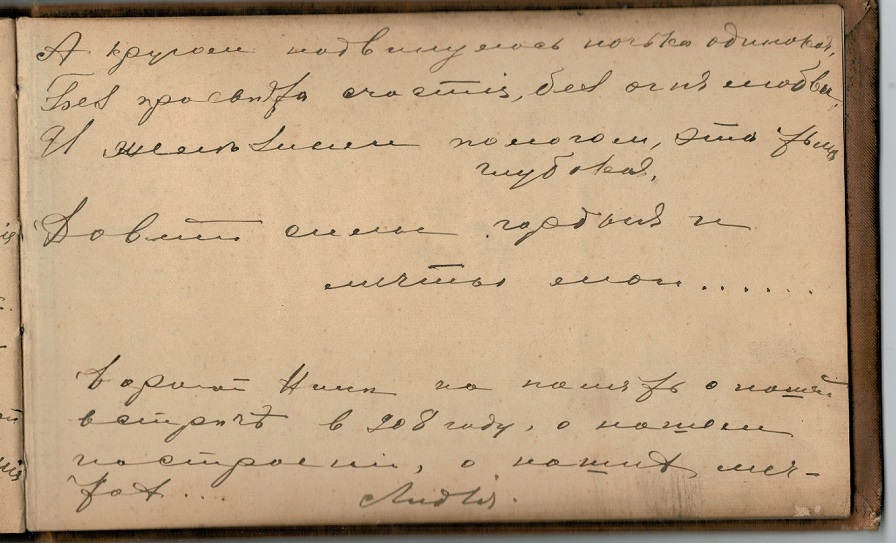 А кругом надвинулась ночька одинокая,
Безъ просвѣта счастія, безъ огня любви,
И жметъ помогом, эта тьма
глубокая,
Давитъ силы гордыя и
мечты мои......
Дорогой Нинѣ на память о нашей
встрѣчѣ в 908 году, о нашем
настроеніи, о нашихъ меч-
тахъ.... Лидія.